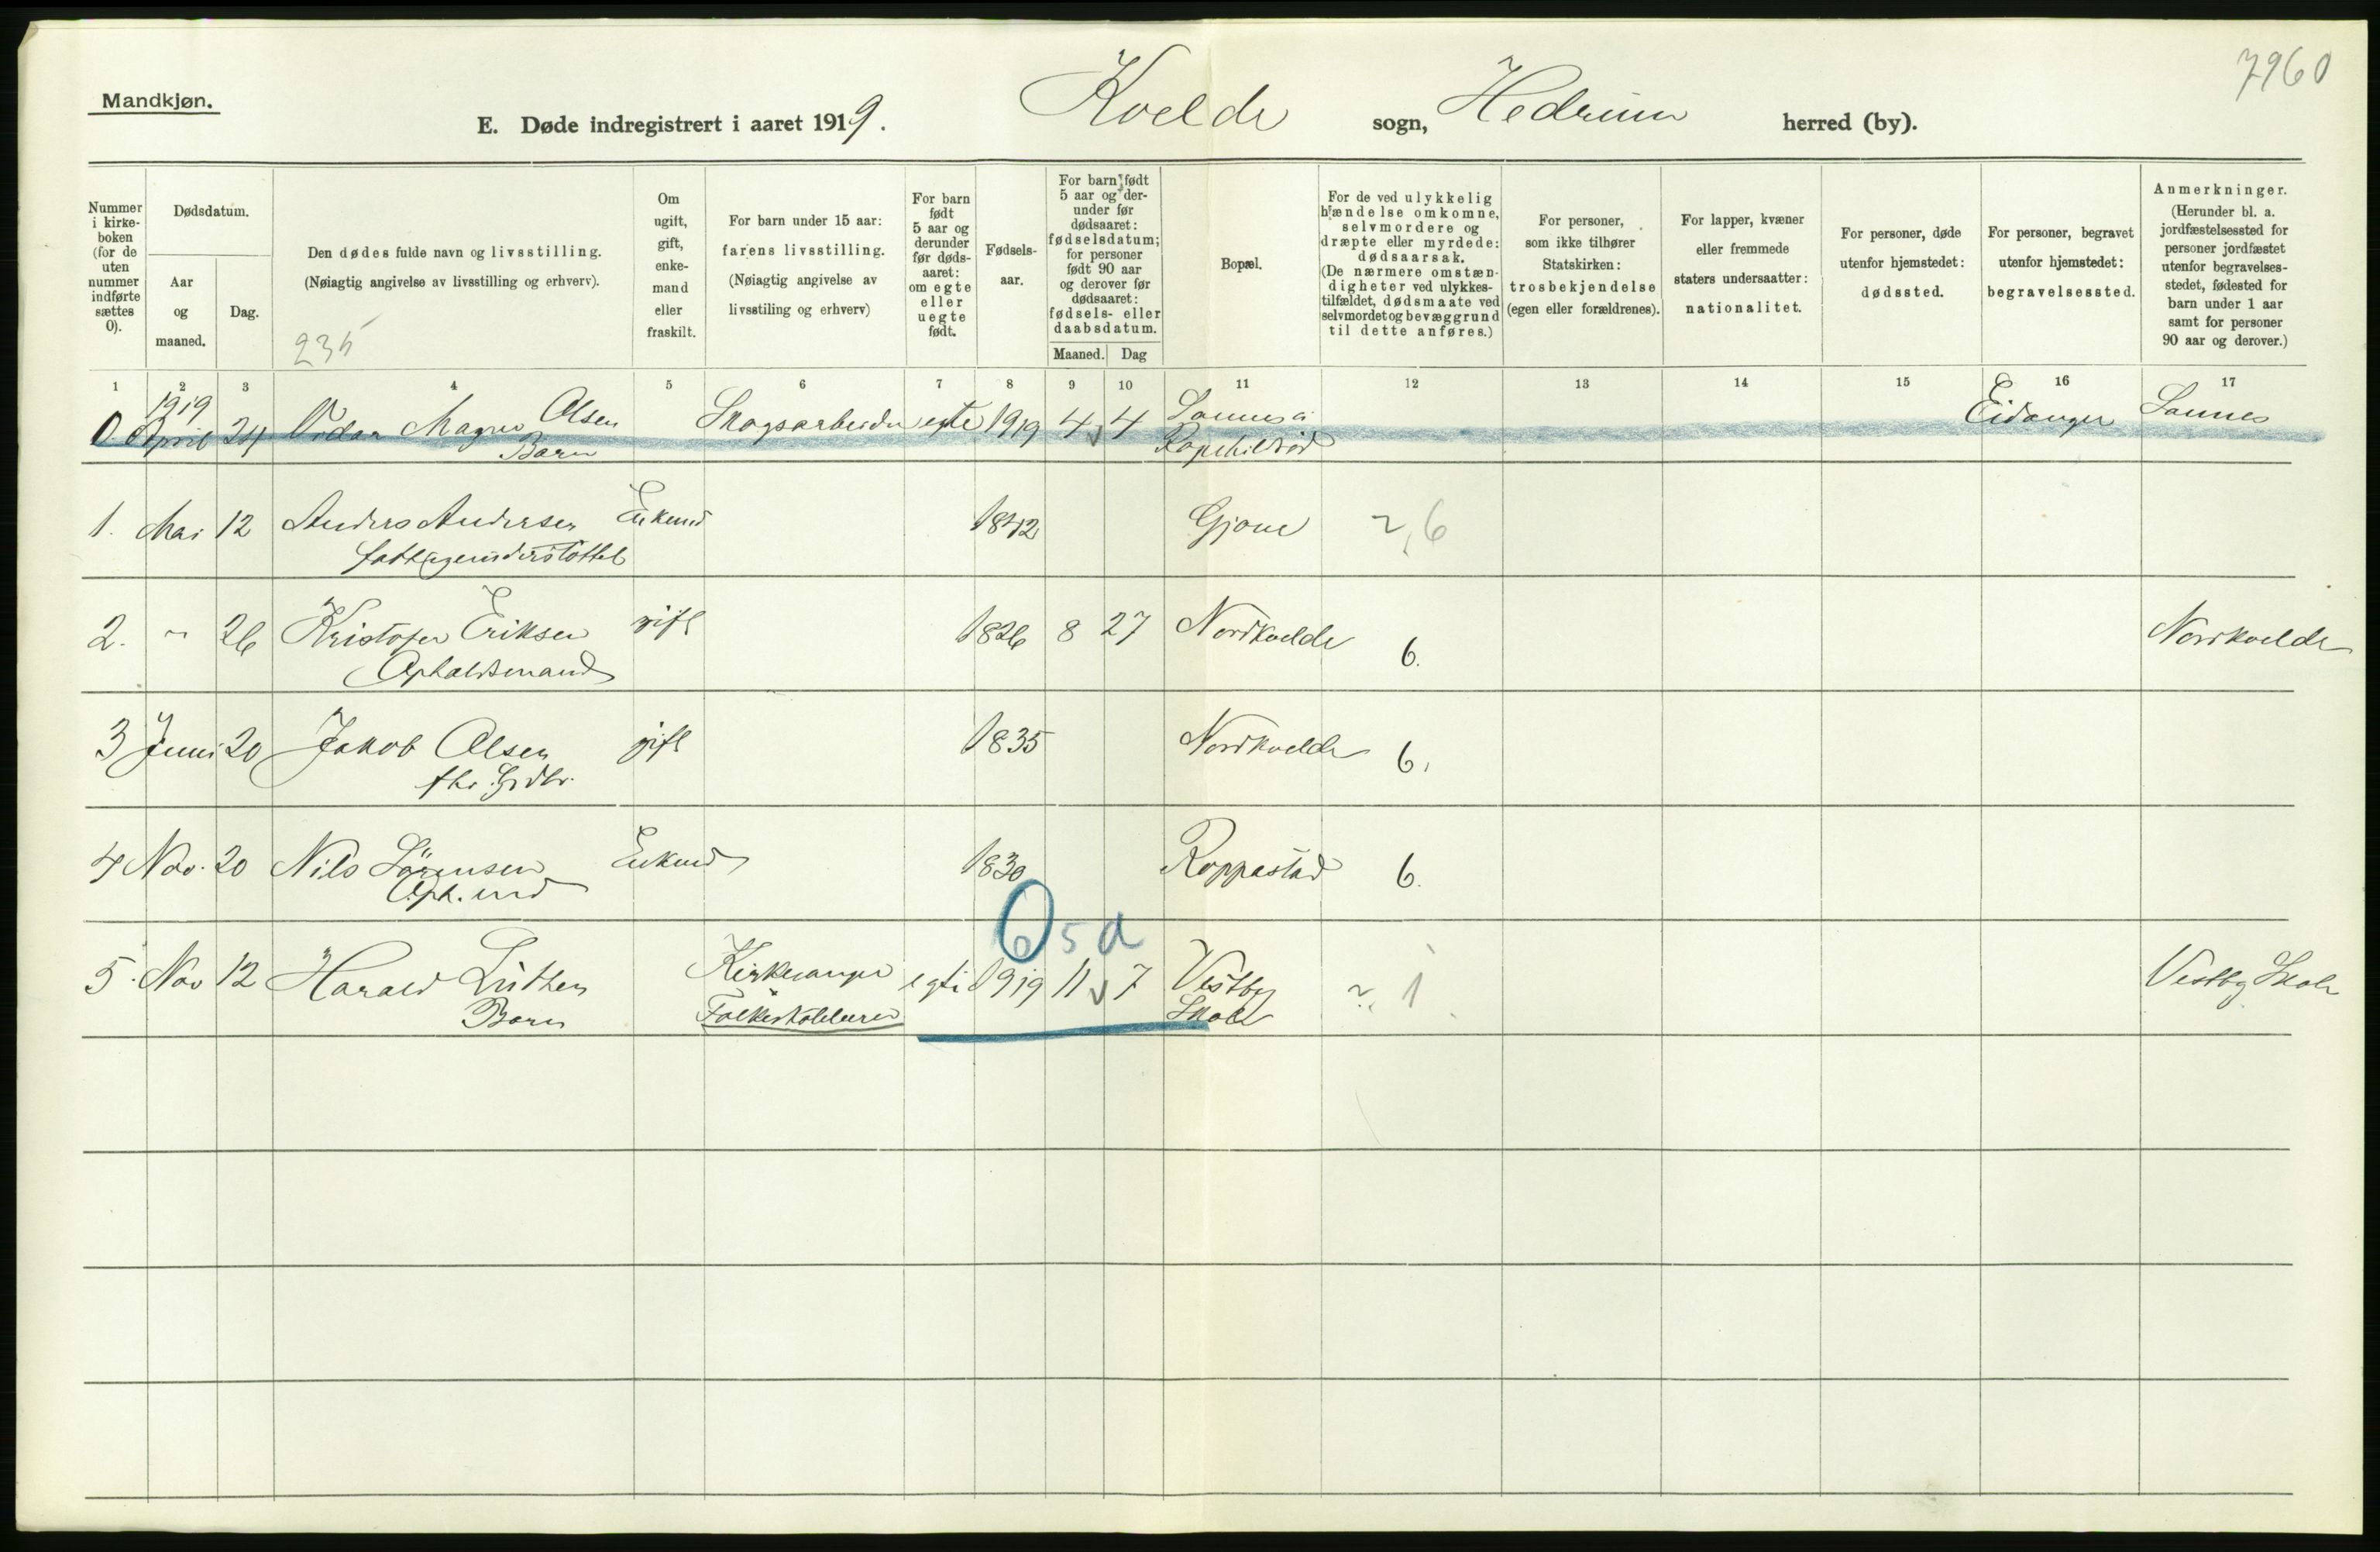 7960
Mandkjøn.
E. Døde indregistrert i aaret 1919. Kvelde sogn, Hedrum herred (by).
Nummer i kirkeboken (for de uten nummer indførte sættes 0).
Dødsdatum.
Aar og maaned.
Dag.
Den dødes fulde navn og livsstilling.
(Nøiagtig angivelse av livsstilling og erhverv).
235
Om ugift, gift, enkemand eller fraskilt.
For barn under 15 aar:
farens livsstilling.
(Nøiagtig angivelse av livsstiling og erhverv)
For barn født 5 aar og derunder før dødsaaret: om egte eller uegte født.
Fødselsaar.
For barn født 5 aar og derunder før dødsaaret: fødselsdatum; for personer født 90 aar og derover før dødsaaret: fødsels- eller daabsdatum.
Maaned. Dag
Bopæl.
For de ved ulykkelig hændelse omkomne, selvmordere og dræpte eller myrdede: dødsaarsak.
(De nærmere omstændigheter ved ulykkestilfældet, dødsmaate ved selvmordet og bevæggrund til dette anføres.)
For personer, som ikke tilhører Statskirken: trosbekjendelse (egen eller forældrenes).
For lapper, kvæner eller fremmede staters undersaatter: nationalitet.
For personer, døde utenfor hjemstedet: dødssted.
For personer, begravet utenfor hjemstedet: begravelsessted.
Anmerkninger.
(Herunder bl. a. jordfæstelsessted for personer jordfæstet utenfor begravelsesstedet, fødested for barn under 1 aar samt for personer 90 aar og derover.)
1 2 3 4 5 6 7 8 9 10 11 12 13 14 15 16 17
1919
0. April 24 Vidar Magne Olsen Skogsarbeider egte 1919 4 4 Sannes Eidanger Sannes
Barn
1. Mai 12 Anders Andersen Enkemd 1842 Gjone ~, 6
fattigunderstöttet
2. " 26 Kristofer Eriksen gift 1826 8 27 Nordkvelde 6. Nordkvelde
Opholdsmand
3 Juni 20 Jakob Olsen gift 1835 Nordkvelde 6.
fhv. Grdbr.
4 Nov. 20 Nils Sörensen Enkemd 1830 Roppestad 6.
Oph. md
0 5 d
5. Nov 12 Harald Luther Kirkesanger egte 1919 11 7 Vestby ~. 1 Vestby Skole
Barn Folkeskolelærer Skole